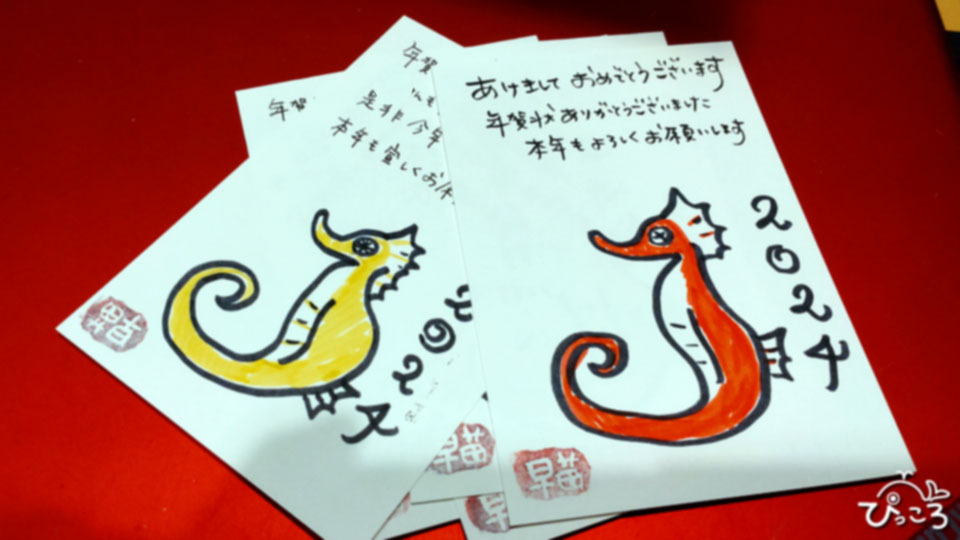 あけまして おめでとうございます
年賀状ありがとうございました
本年もよろしくお願いします
2024
早苗
年賀
年賀
是非 今年
本年も宜しくお
2024
早苗
ぴっころ